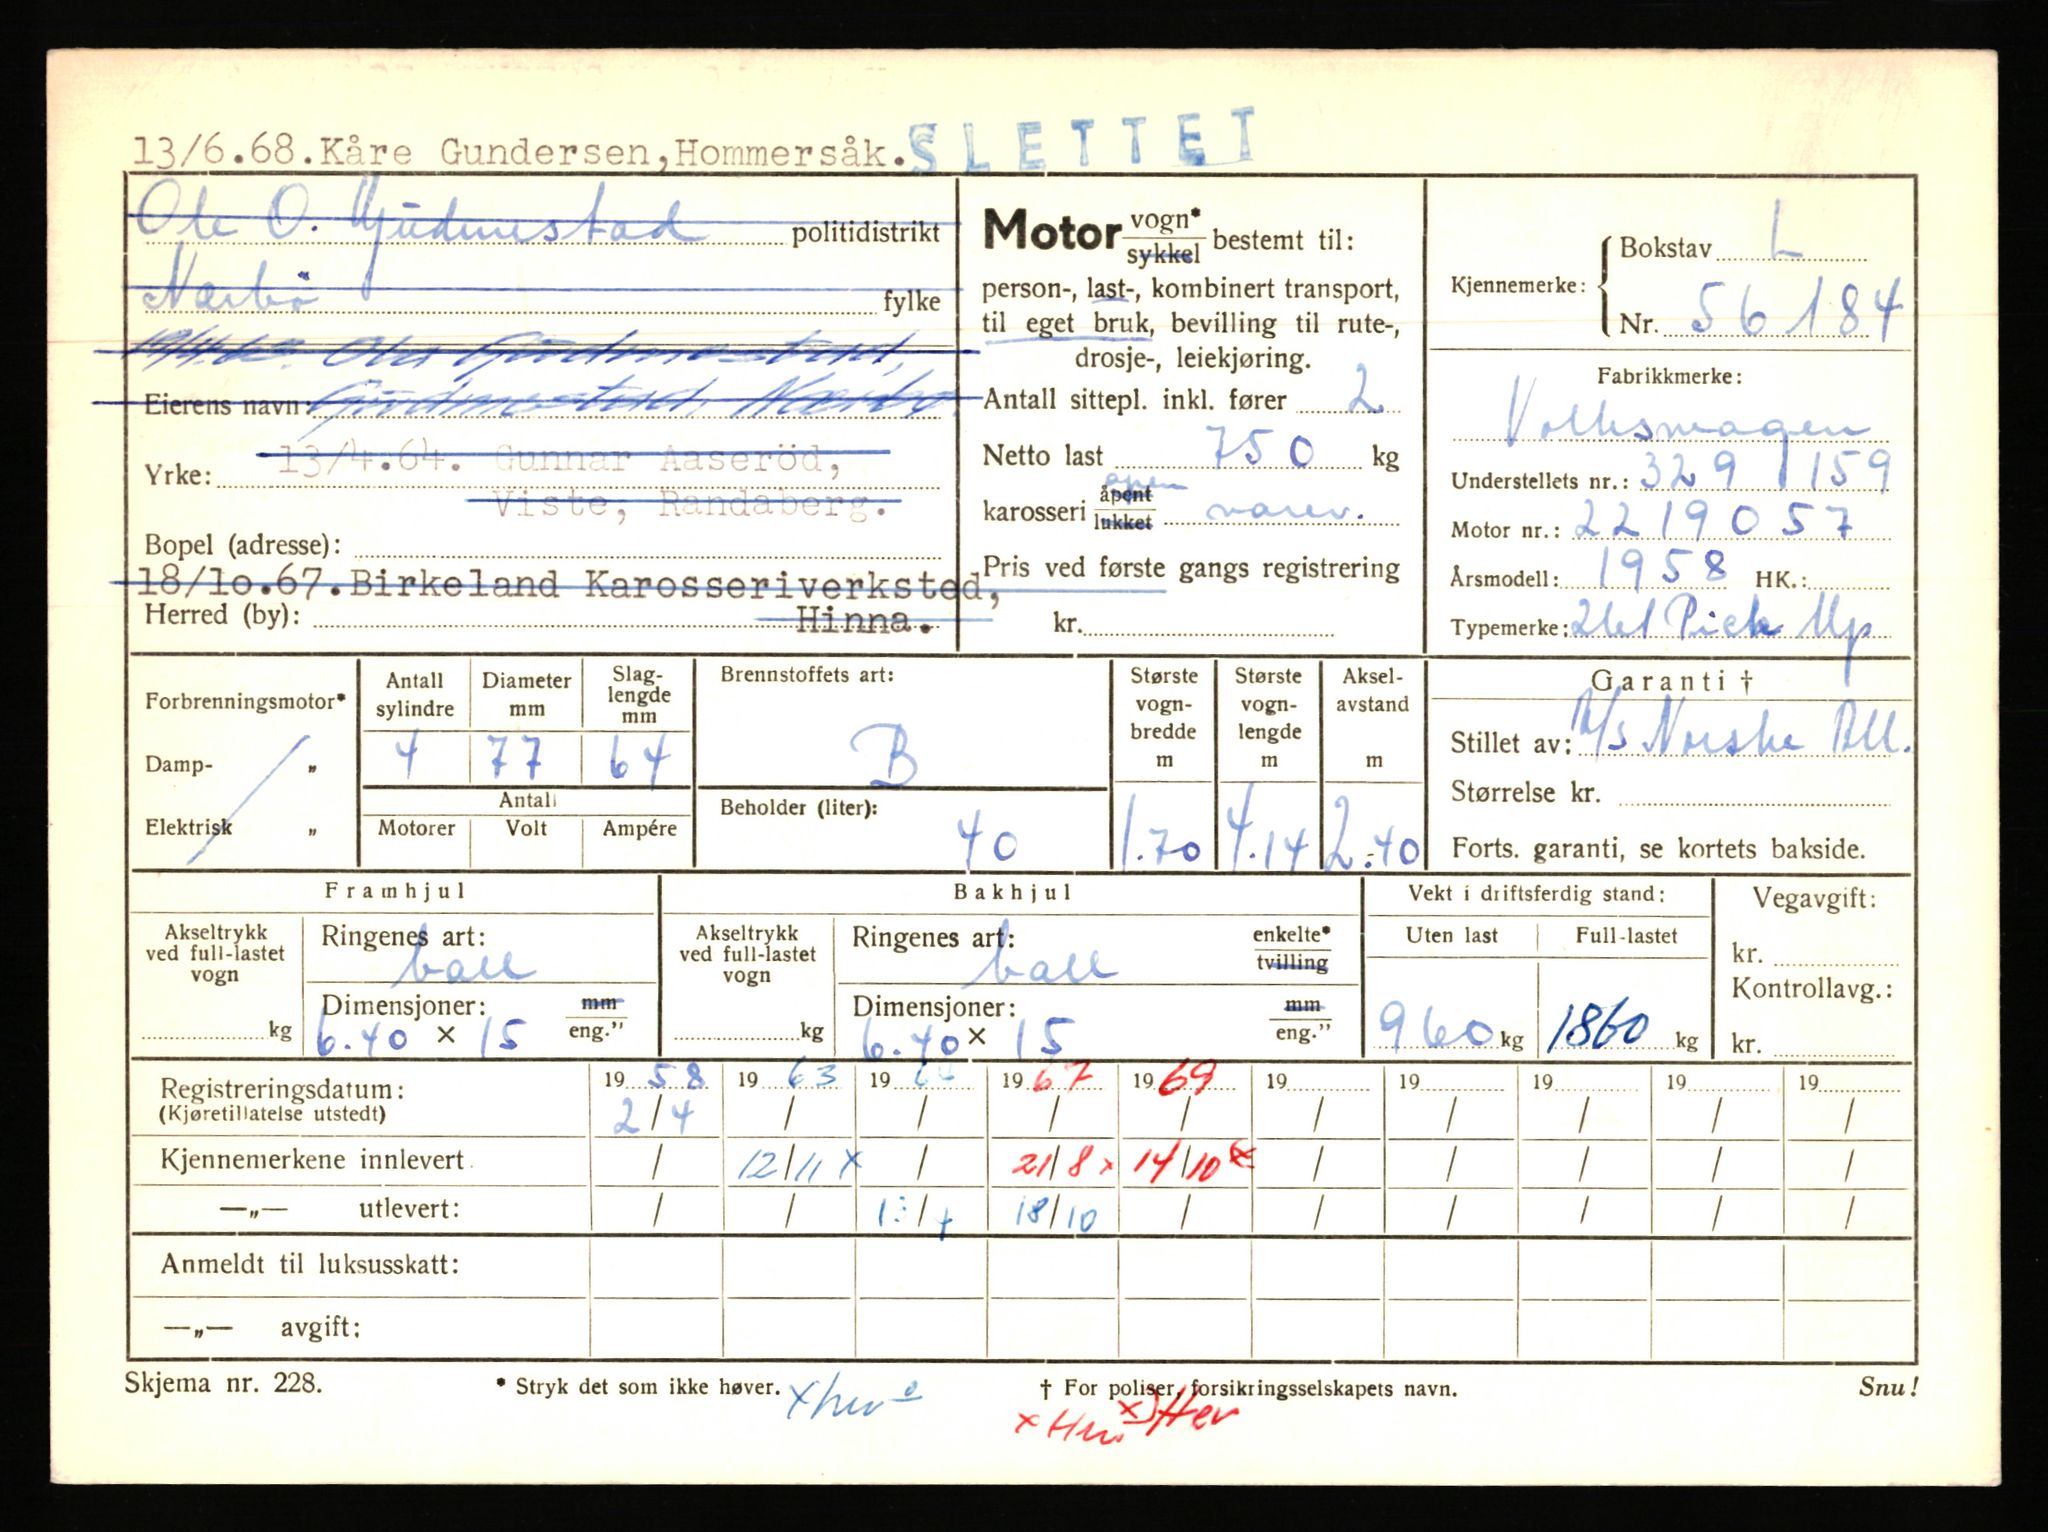 13/6.68. Kåre Gundersen, Hommersåk. SLETTET
Ole O. Gudmestad politidistrikt
Nærbö fylke
Ole Gudmestad,
Eierens navn: Gudmestad, Nærbö
Yrke: 13/4.64. Gunnar Aaseröd,
Viste, Randaberg.
Bopel (adresse):
18/10.67. Birkeland Karosseriverksted,
Herred (by): Hinna.
Motor vogn* sykkel bestemt til:
person-, last-, kombinert transport,
til eget bruk, bevilling til rute-,
drosje-, leiekjøring.
Antall sittepl. inkl. fører 2
Netto last 750 kg
karosseri åpent lukket åpen varev.
Pris ved første gangs registrering
kr.
Kjennemerke: Bokstav L
Nr. 56184
Fabrikkmerke:
Volkswagen
Understellets nr.: 329 159
Motor nr.: 2219057
Årsmodell: 1958 HK.:
Typemerke: 261 Pick Up
Forbrenningsmotor*
Damp- „
Elektrisk „
Antall sylindre Diameter mm Slag-lengde mm
4 77 64
Antall
Motorer Volt Ampére
Brennstoffets art:
B
Beholder (liter):
40
Største vogn-bredde m 1.70
Største vogn-lengde m 4.14
Aksel-avstand m 2.40
Garanti †
Stillet av: A/S Norske All.
Størrelse kr.
Forts. garanti, se kortets bakside.
Framhjul
Akseltrykk ved full-lastet vogn kg
Ringenes art: ball
Dimensjoner: mm
6.40 × 15 eng.”
Bakhjul
Akseltrykk ved full-lastet vogn kg
Ringenes art: ball enkelte* tvilling
Dimensjoner: mm
6.40 × 15 eng.”
Vekt i driftsferdig stand:
Uten last Full-lastet
960 kg 1860 kg
Vegavgift:
kr.
Kontrollavg.:
kr.
Registreringsdatum: 1958 1963 1964 1967 1969 19 19 19 19 19
(Kjøretillatelse utstedt) 2/4 / / / / / / / / /
Kjennemerkene innlevert / 12/11 x / 21/8 x 14/10 x / / / / /
—„— utlevert: / / 13/4 18/10 / / / / / /
Anmeldt til luksusskatt:
—„— avgift:
Skjema nr. 228. * Stryk det som ikke høver. † For poliser, forsikringsselskapets navn. Snu!
x Her
x Her x) Her